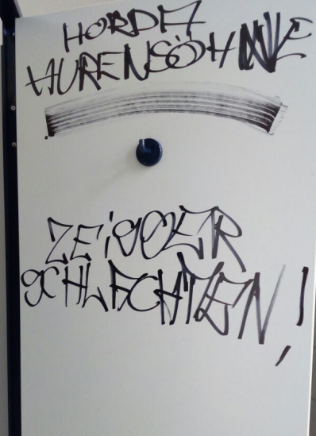 HORDA
HURENSÖHNE
ZEiGGER
SCHLACHTEN!